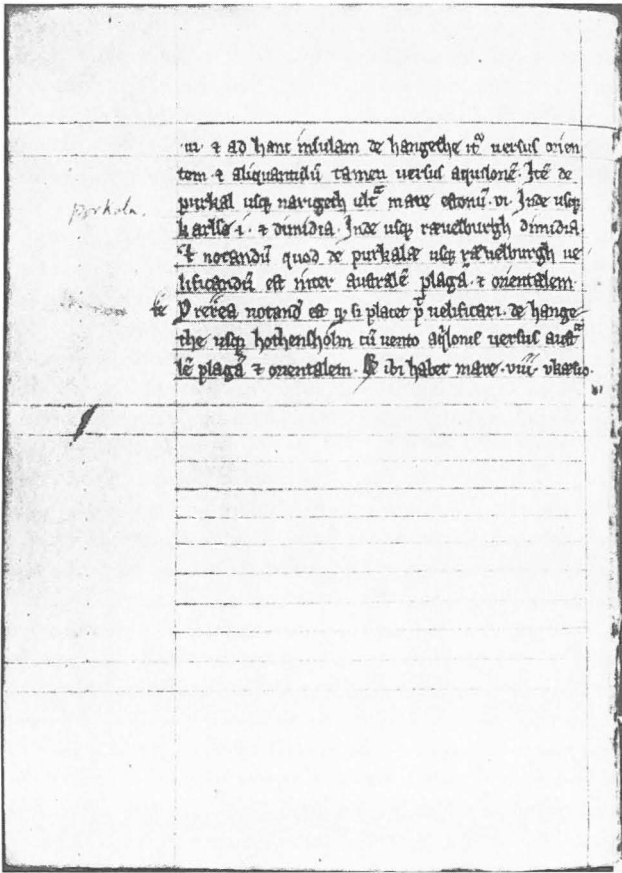 .iii. ⁊ ad hanc insulam de hangethe itͣ uersus orien
tem ⁊ aliquantulū tamen uersus aquilonē. Itē de
purkal usq narigeth ultͣ mare estonū .vi. Inde usq
karlsø .i. ⁊ dimidia. Inde usq ræuelburgh dimidia
⁊ notandū quod de purkalæ usq ræuelburgh ue
lificandū est inter australē plagā. ⁊ orientalem.
porkala.
Pretereа notand est q si placet p̄ uelificari. de hange
the usq hothensholm cū uento aqͥlonis uersus austͣ
lē plagā ⁊ orientalem. Et ibi habet mare .viii. vkæsio.